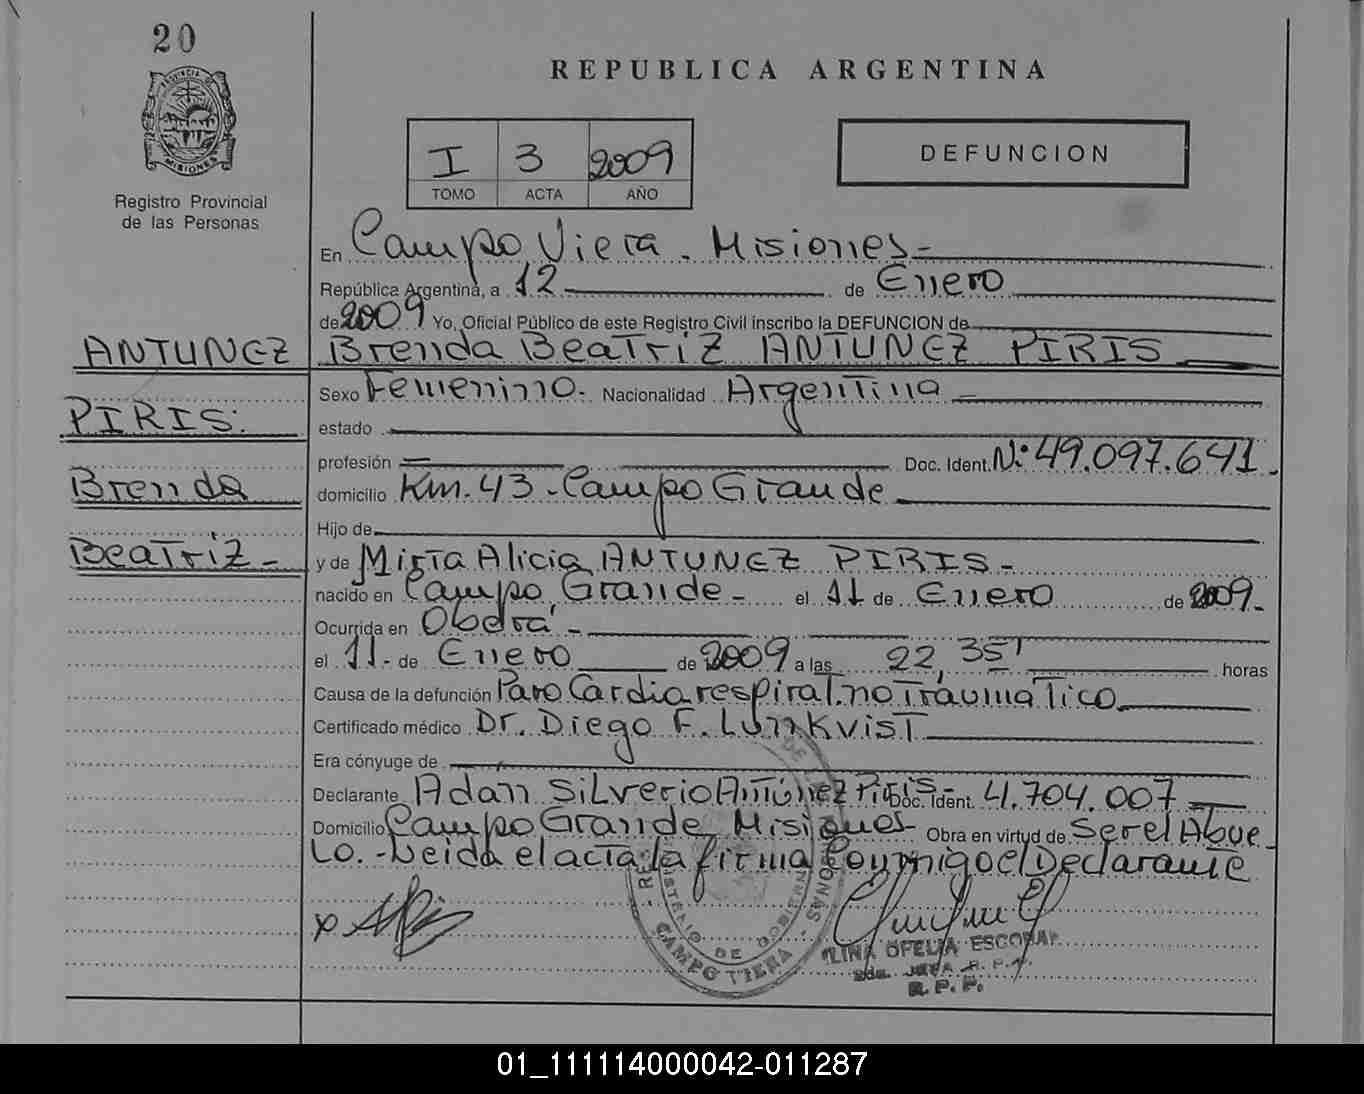 20
PROVINCIA DE
MISIONES
Registro Provincial
de las Personas
REPUBLICA ARGENTINA
I 3 2009
TOMO ACTA AÑO
DEFUNCION
En Campo Viera. Misiones-
República Argentina, a 12 de Enero
de 2009 Yo, Oficial Público de este Registro Civil inscribo la DEFUNCION de
ANTUNEZ Brenda Beatriz ANTUNEZ PIRIS
Sexo Femenino. Nacionalidad Argentina
PIRIS:
estado
profesión Doc. Ident. Nº 49.097.641.
Brenda
domicilio Km. 43 - Campo Grande
Hijo de
Beatriz -
y de Mirta Alicia ANTUNEZ PIRIS -
nacido en Campo Grande - el 11 de Enero de 2009.
Ocurrida en Oberá -
el 11 - de Enero de 2009 a las 22,35' horas
Causa de la defunción Paro Cardiarespirat. no Traumatico.
Certificado médico Dr. Diego F. LunKvist
Era cónyuge de
Declarante Adán Silverio Antúnez Piris - Doc. Ident. 4.704.007
Domicilio Campo Grande Misiones - Obra en virtud de Ser el Abue
Lo. - Leida el acta la firma Conmigo el Declarante
x
LINA OFELIA ESCOBAR
R.P.P.
CAMPO VIERA
01_111114000042-011287